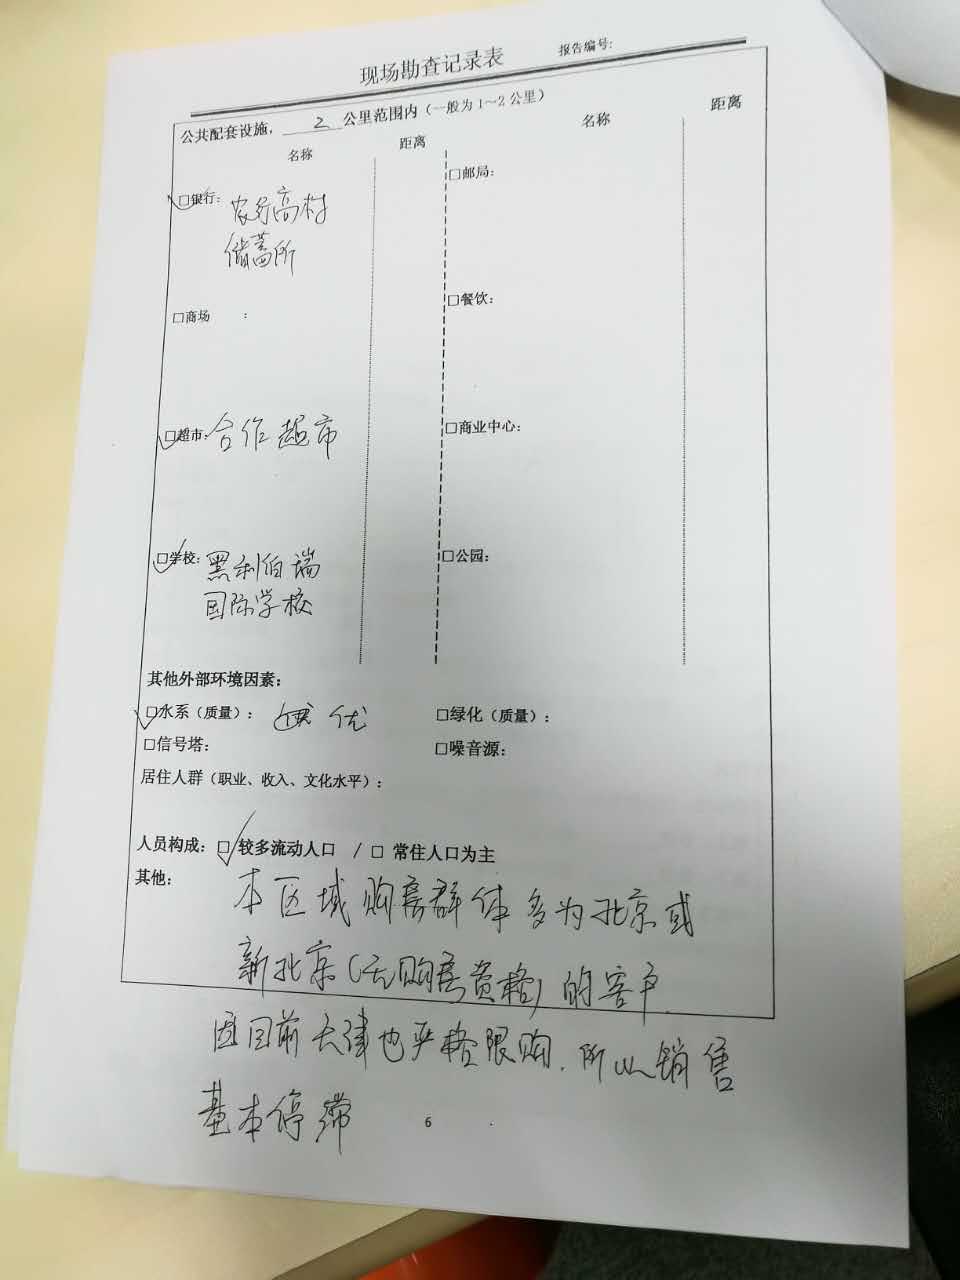 现场勘查记录表 报告编号:
公共配套设施, 2 公里范围内(一般为1~2公里)
名称 距离 名称 距离
☑银行: 农行高村 □邮局:
储蓄所
□商场 : □餐饮:
☑超市: 合作超市 □商业中心:
☑学校: 黑利伯瑞 □公园:
国际学校
其他外部环境因素:
☑水系(质量): 优 □绿化(质量):
□信号塔: □噪音源:
居住人群(职业、收入、文化水平):
人员构成: ☑ 较多流动人口 / □ 常住人口为主
其他: 本区域购房群体多为北京或
新北京(无购房资格)的客户
因目前天津也严格限购.所以销售
基本停滞
6